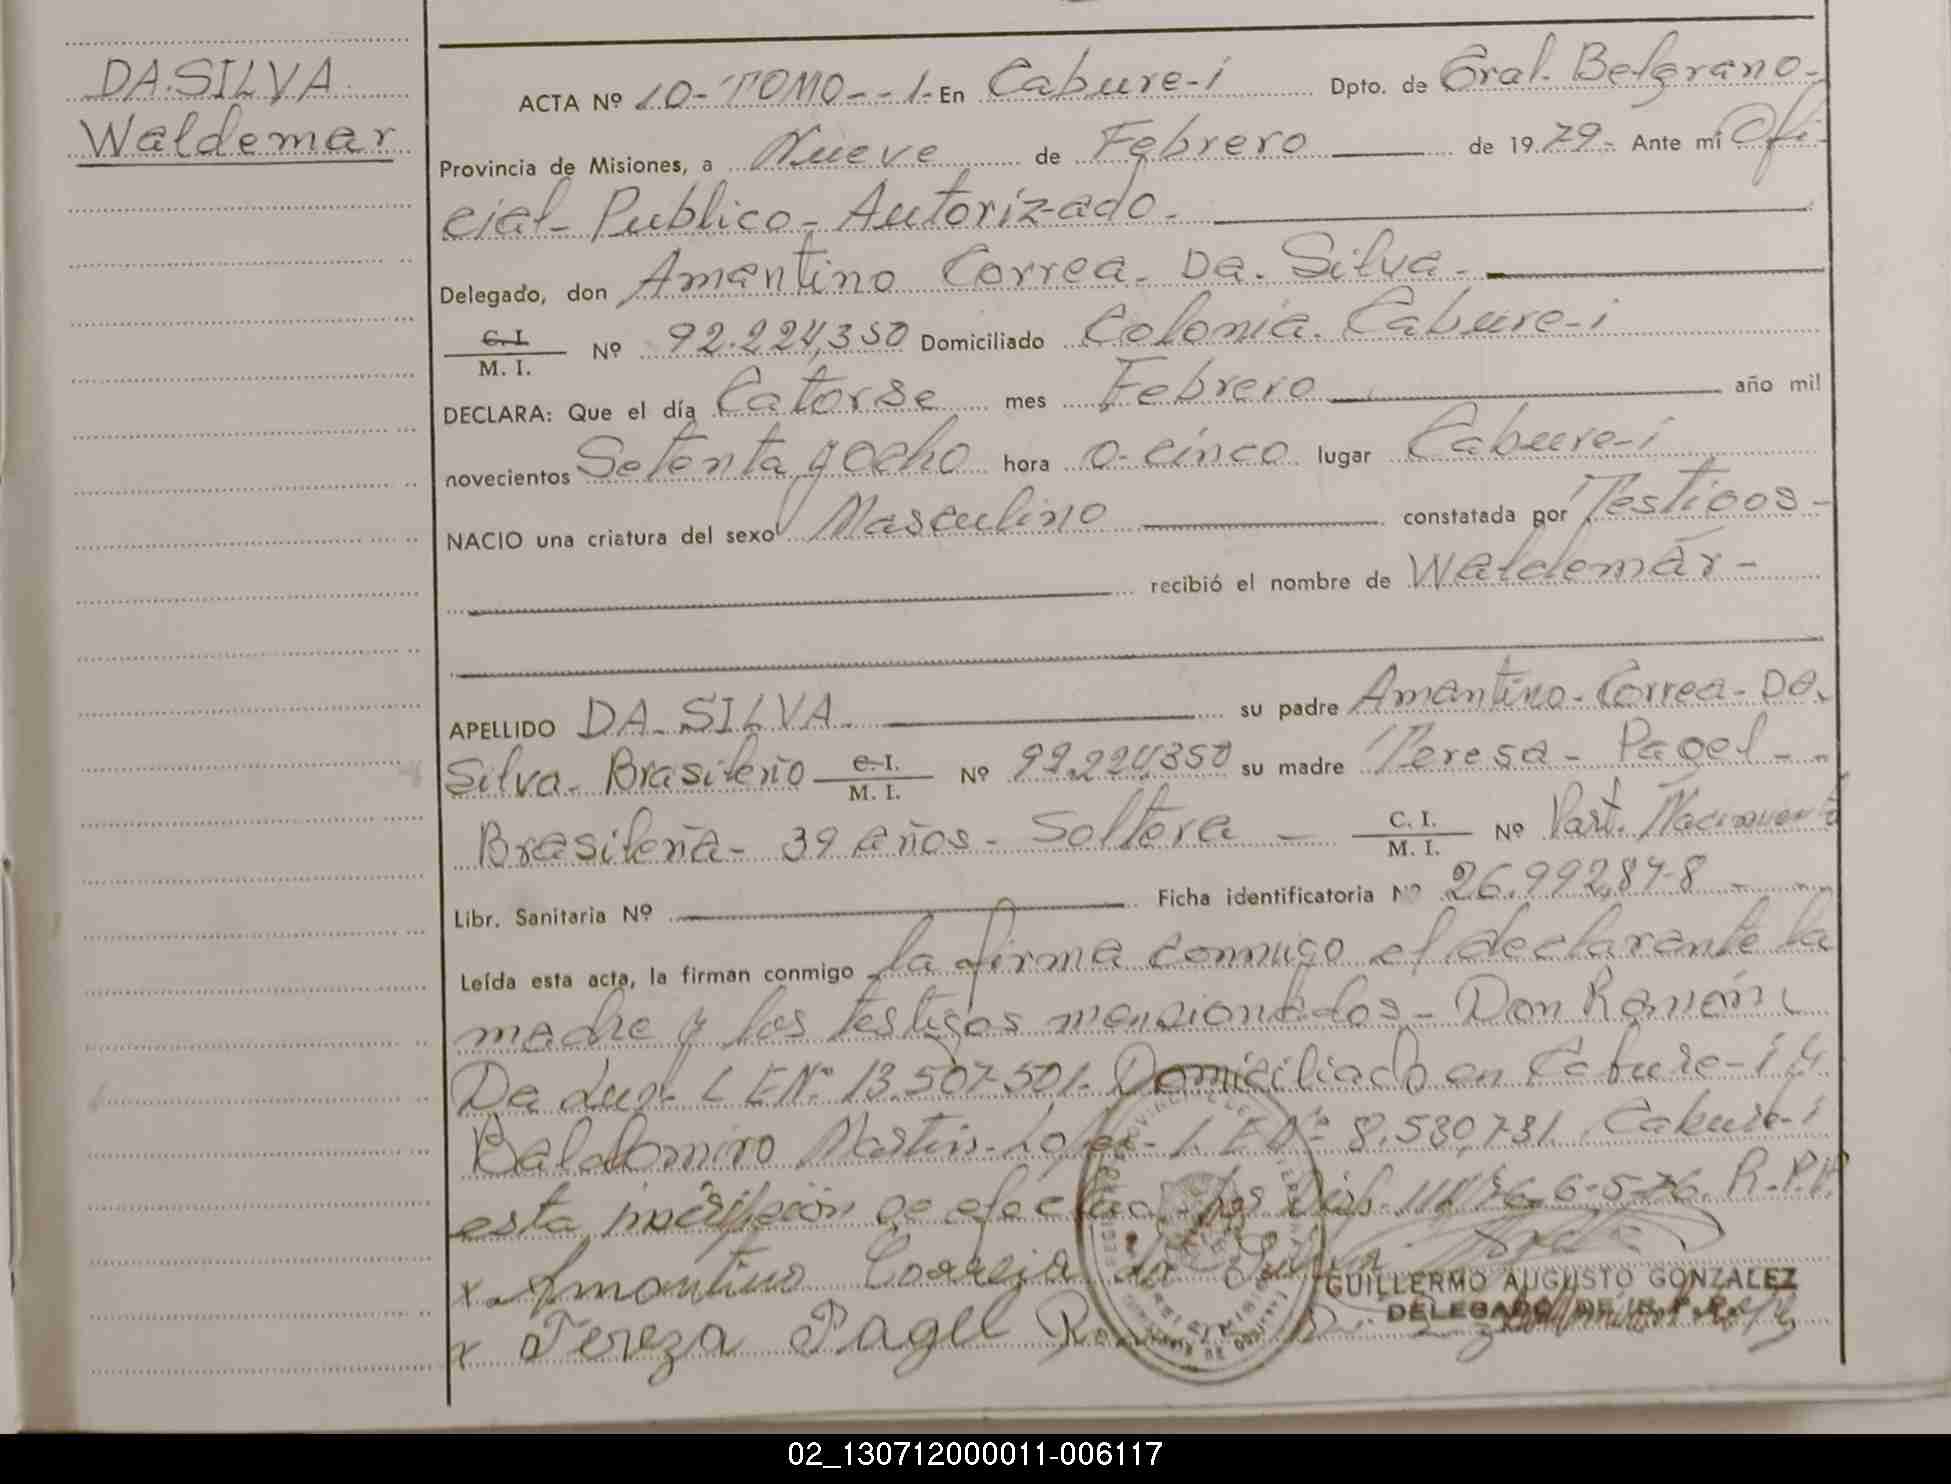 DA.SILVA
Waldemar
ACTA Nº 10-TOMO--1- En Cabure-i Dpto. de Gral. Belgrano-
Provincia de Misiones, a Nueve de Febrero de 1979- Ante mi Ofi-
cial- Publico- Autorizado-
Delegado, don Amantino Correa- Da. Silva-
C.I. M.I. Nº 92.224,350 Domiciliado Colonia. Cabure-i
DECLARA: Que el día Catorse mes Febrero año mil
novecientos Setenta y ocho hora 0-cinco lugar Cabure-i
NACIO una criatura del sexo Masculino constatada por Testigos-
recibió el nombre de Waldemar-
APELLIDO DA SILVA su padre Amantino- Correa- Da.
Silva- Brasileño C.I. M.I. Nº 92.224,350 su madre Teresa- Pagel--
Brasileña- 39 años- Soltera- C.I. M.I. Nº Part.
Libr. Sanitaria Nº Ficha identificatoria Nº 26.992,874-8
Leída esta acta, la firman conmigo la firma conmigo el declarante la
madre y los testigos mensionados- Don Ramón
Da Luz- L E Nº 13.507-501- Domiciliado en Cabure-i y
Baldomiro Martin- Lopez- L.E Nº 8.530,731 Cabure-i
esta inscripcion se efectua por 6-5-76. R.P.P.
x Amantino Correia da Silva
GUILLERMO AUGUSTO GONZALEZ
DELEGADO DE
x Tereza Pagel
02_130712000011-006117